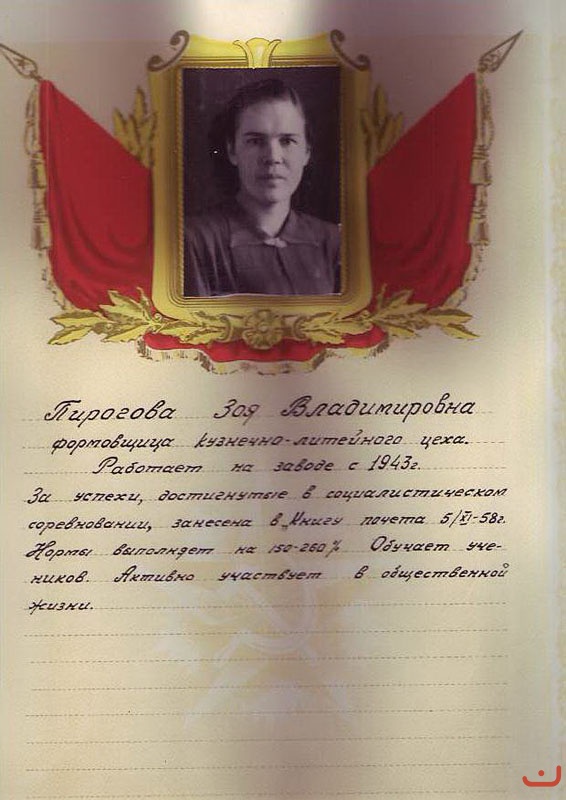 Пирогова Зоя Владимировна
формовщица кузнечно-литейного цеха.
Работает на заводе с 1943г.
За успехи, достигнутые в социалистическом
соревновании, занесена в „Книгу почета 5/XI-58г.
Нормы выполняет на 150-260% Обучает уче-
ников. Активно участвует в общественной
жизни.